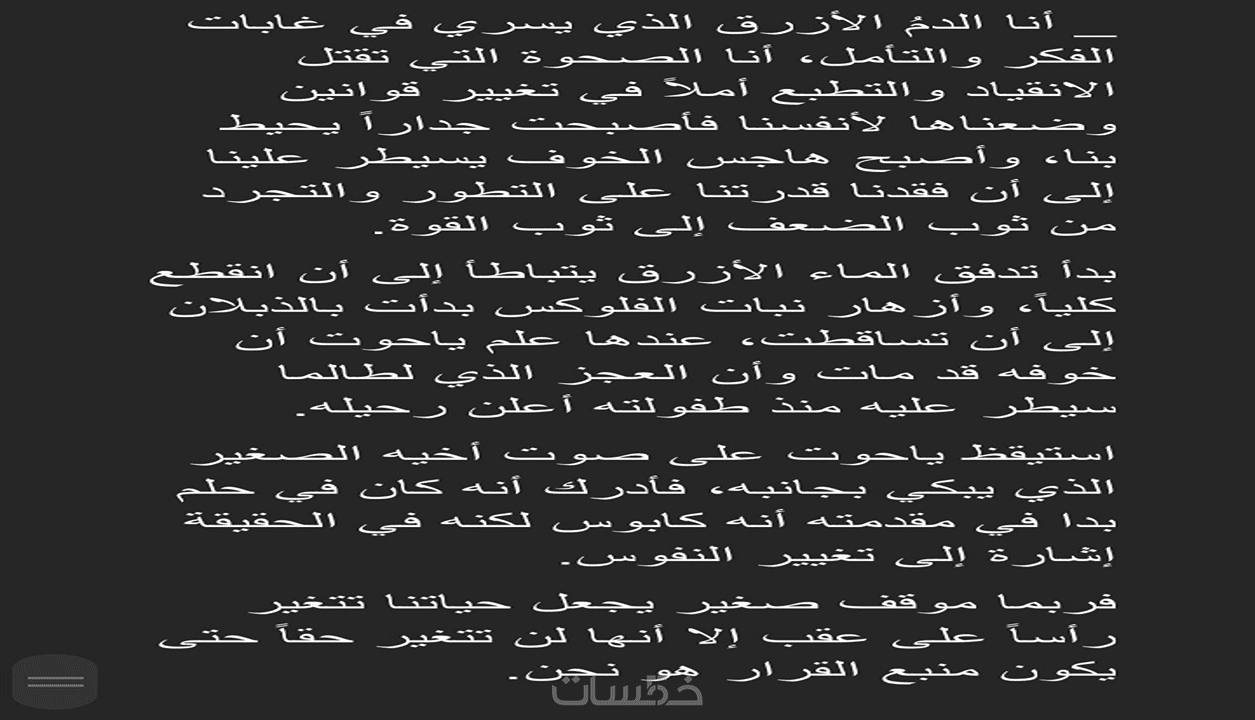 __ أنا الدمُ الأزرق الذي يسري في غابات
الفكر والتأمل، أنا الصحوة التي تقتل
الانقياد والتطبع أملاً في تغيير قوانين
وضعناها لأنفسنا فأصبحت جداراً يحيط
بنا، وأصبح هاجس الخوف يسيطر علينا
إلى أن فقدنا قدرتنا على التطور والتجرد
من ثوب الضعف إلى ثوب القوة.
بدأ تدفق الماء الأزرق يتباطأ إلى أن انقطع
كلياً، وأزهار نبات الفلوكس بدأت بالذبلان
إلى أن تساقطت، عندها علم ياحوت أن
خوفه قد مات وأن العجز الذي لطالما
سيطر عليه منذ طفولته أعلن رحيله.
استيقظ ياحوت على صوت أخيه الصغير
الذي يبكي بجانبه، فأدرك أنه كان في حلم
بدا في مقدمته أنه كابوس لكنه في الحقيقة
إشارة إلى تغيير النفوس.
فربما موقف صغير يجعل حياتنا تتغير
رأساً على عقب إلا أنها لن تتغير حقاً حتى
يكون منبع القرار هو نحن.
خمسات